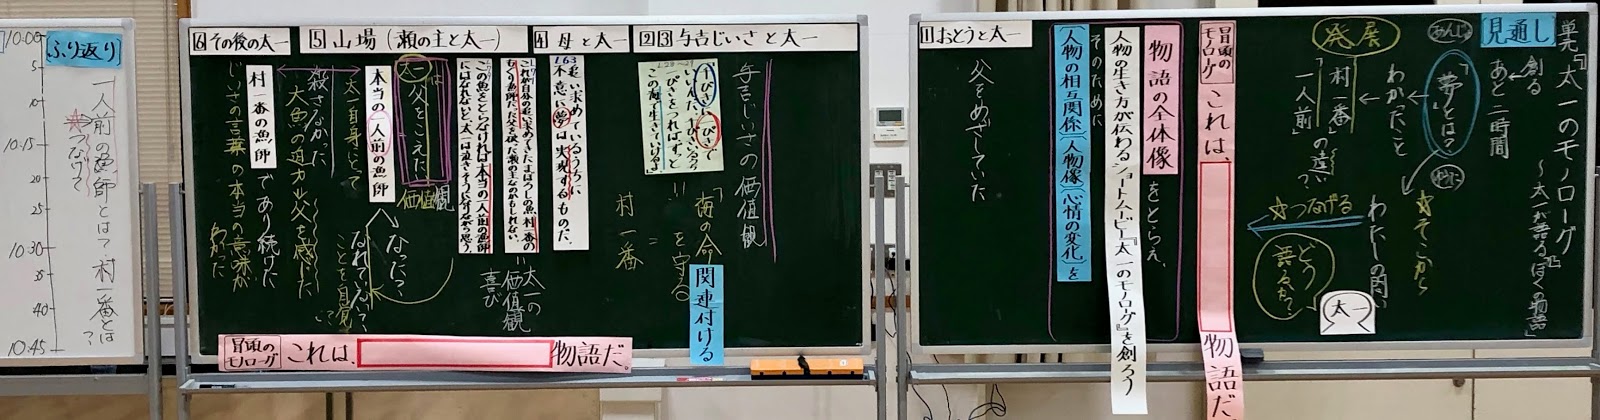 単元『太一のモノローグ』
～太一が語る「ぼくの物語」
見通し
創る
あと二時間
「夢」とは?
わかったこと
発展
「村一番」
「一人前」の違い?
☆そこから
わたしの問い
☆つなげる
どう語るか?
太一
冒頭のモノローグ
これは、
物語だ
物語の全体像
をとらえ、
人物の生き方が伝わるショートムービー『太一のモノローグ』を創ろう
そのために
人物の相互関係
人物像
心情の変化
を
1おとうと太一
父をめざしていた
23与吉じいさと太一
与吉じいさの価値観
千びきに一ぴきで
いいんだ
千びきいるうち
一ぴきをつれば、ずっと
この海で生きていけるよ
=「海の命」を守る
=
村一番
関連付ける
4母と太一
5山場(瀬の主と太一)
追い求めているうちに
不意に夢は実現するものだ。
これが自分の追い求めてきたまぼろしの魚、村一番の
もぐり漁師だった父を破った瀬の主なのかもしれない。
この魚をとらなければ本当の一人前の漁師
にはなれないのだと、太一は泣きそうになりながら思う。
太一の価値観
=
喜び
太一は
父をこえた
価値観
本当の一人前の漁師
なった?
なれてない?
ことを自覚
太一自身にとって
殺さなかった
大魚の迫力→父を感じた
6その後の太一
村一番の漁師
であり続けた
じいさの言葉の本当の意味が
わかった
冒頭のモノローグ
これは、
物語だ。
ふり返り
一人前の漁師とは?村一番とは?
☆つなげて
10:00
5
10
10:15
20
25
10:30
35
40
10:45